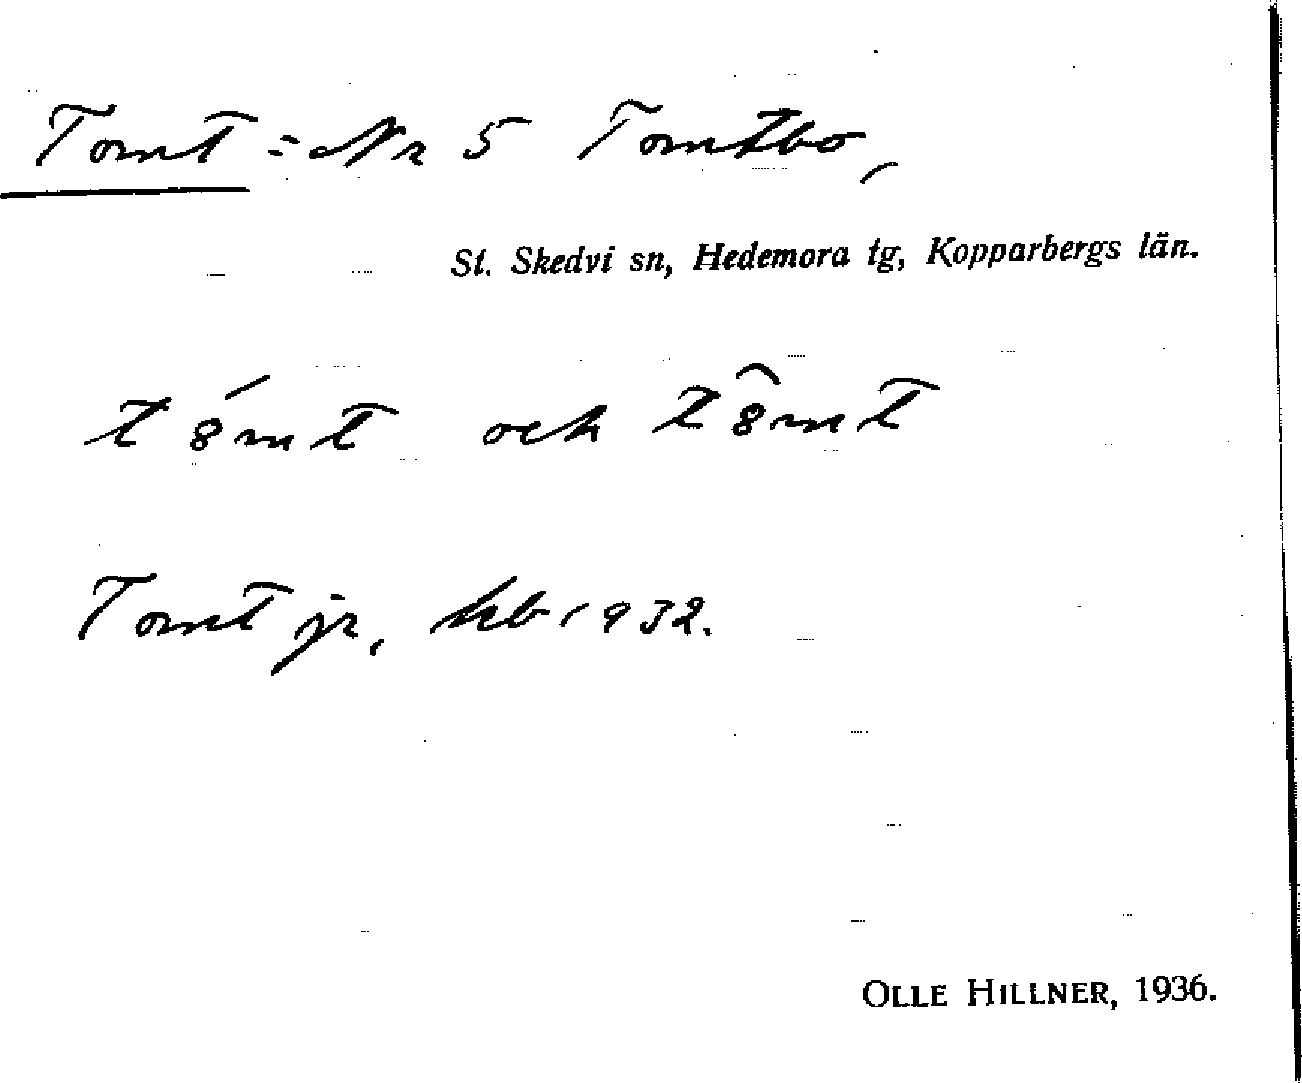 Tomt = Nr 5 Tomtbo,
St. Skedvi sn, Hedemora tg, Kopparbergs län.
t8́mt och t8̂mt
Tomt jr, kb 1932.
OLLE HILLNER, 1936.